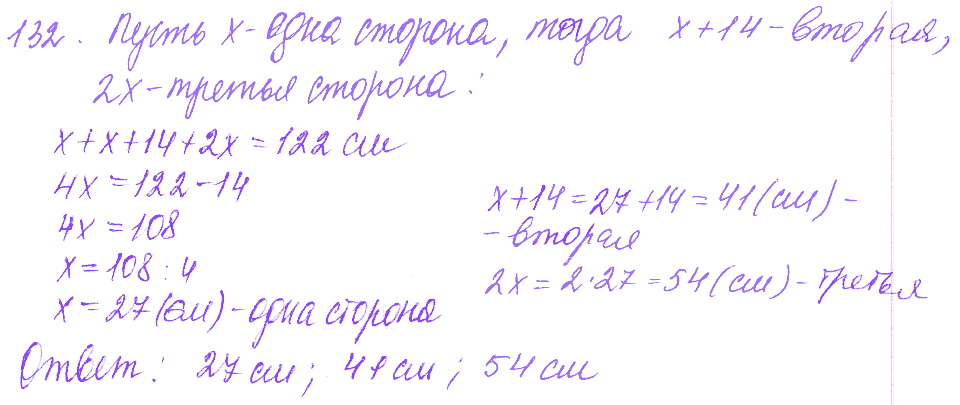 132. Пусть x - одна сторона, тогда x+14 - вторая,
2x - третья сторона:
x+x+14+2x = 122 см
4x = 122-14
4x = 108
x = 108 : 4
x = 27 (см) - одна сторона
x+14 = 27+14 = 41 (см) -
- вторая
2x = 2·27 = 54 (см) - третья
Ответ: 27 см; 41 см; 54 см